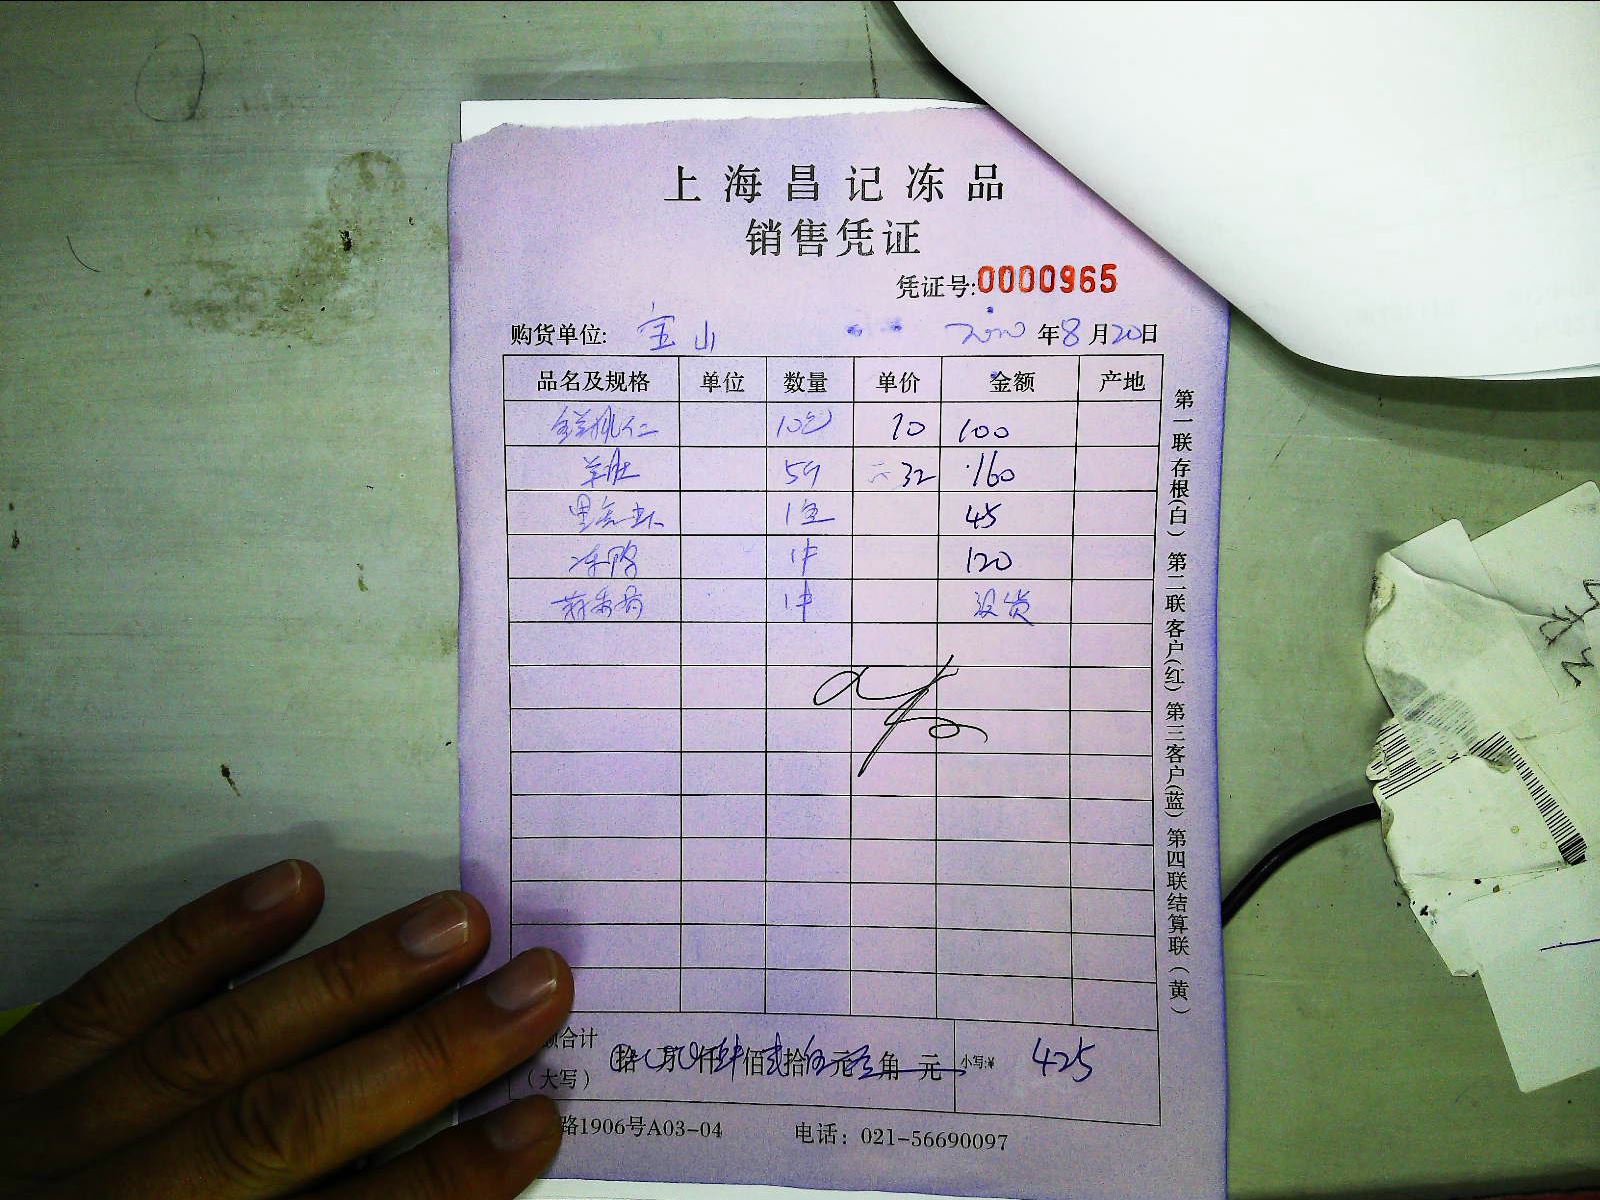 上海昌记冻品
销售凭证
凭证号:0000965
购货单位: 宝山 年8月20日
品名及规格 单位 数量 单价 金额 产地
鲜桃仁 10包 10 100
羊肚 5 32 160
1盒 45
冻鸭 1件 120
1件 没货
额合计
(大写) 拾 万 仟肆佰贰拾伍元 角 元 小写:¥ 425
路1906号A03-04 电话: 021-56690097
第一联存根(白) 第二联客户(红) 第三客户(蓝) 第四联结算联(黄)